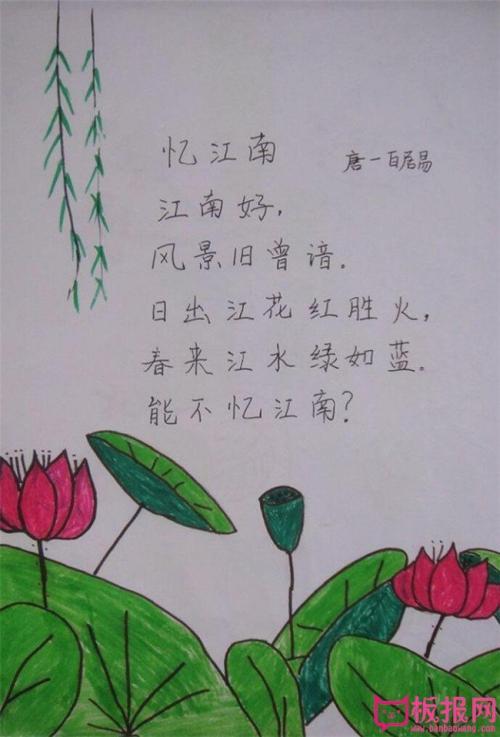 忆江南 唐一白居易
江南好,
风景旧曾谙。
日出江花红胜火,
春来江水绿如蓝。
能不忆江南?
板报网
www.banbaowang.com